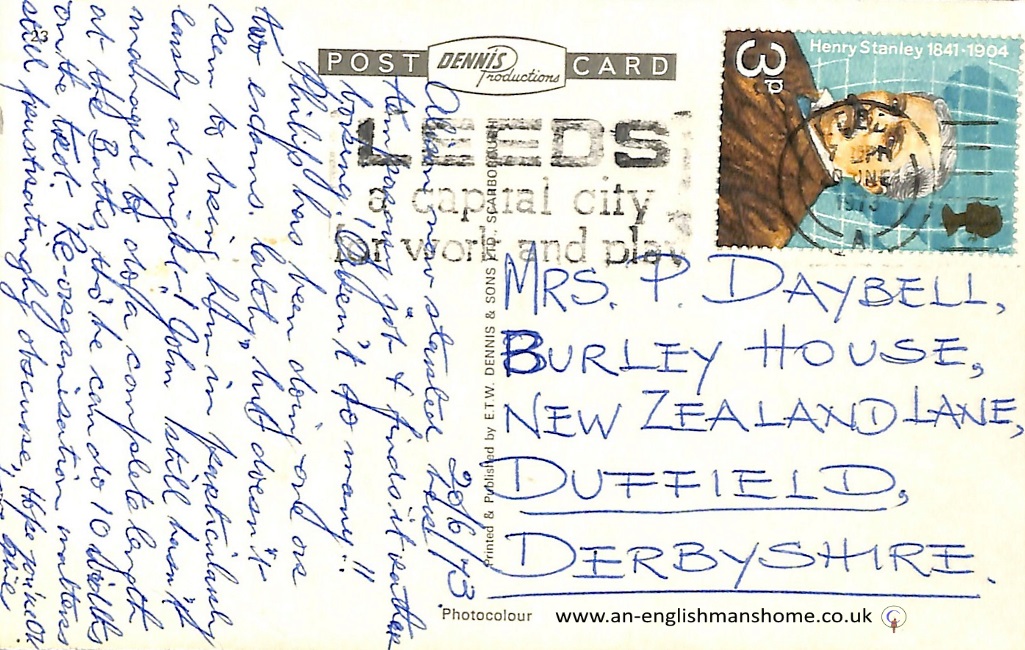 23
POST DENNIS Productions CARD
Henry Stanley 1841-1904
3p
LEEDS
a capital city
for work and play
1973
A
MRS. P. DAYBELL,
BURLEY HOUSE,
NEW ZEALAND LANE,
DUFFIELD,
DERBYSHIRE.
20/6/73
Alison now started her
temporary job & finds it rather
boring. Aren't so many!!
Philip has been doing one or
two exams. lately, but doesn't
seem to bring him in particularly
early at night! John still hasn't
managed to do a complete length
at the Baths, tho' he can do 10 widths
on the trot. Re-organisation matters
still frustratingly obscure, Hope you're OK
Printed & Published by E.T.W. DENNIS & SONS LTD., SCARBOROUGH
Photocolour
www.an-englishmanshome.co.uk ©